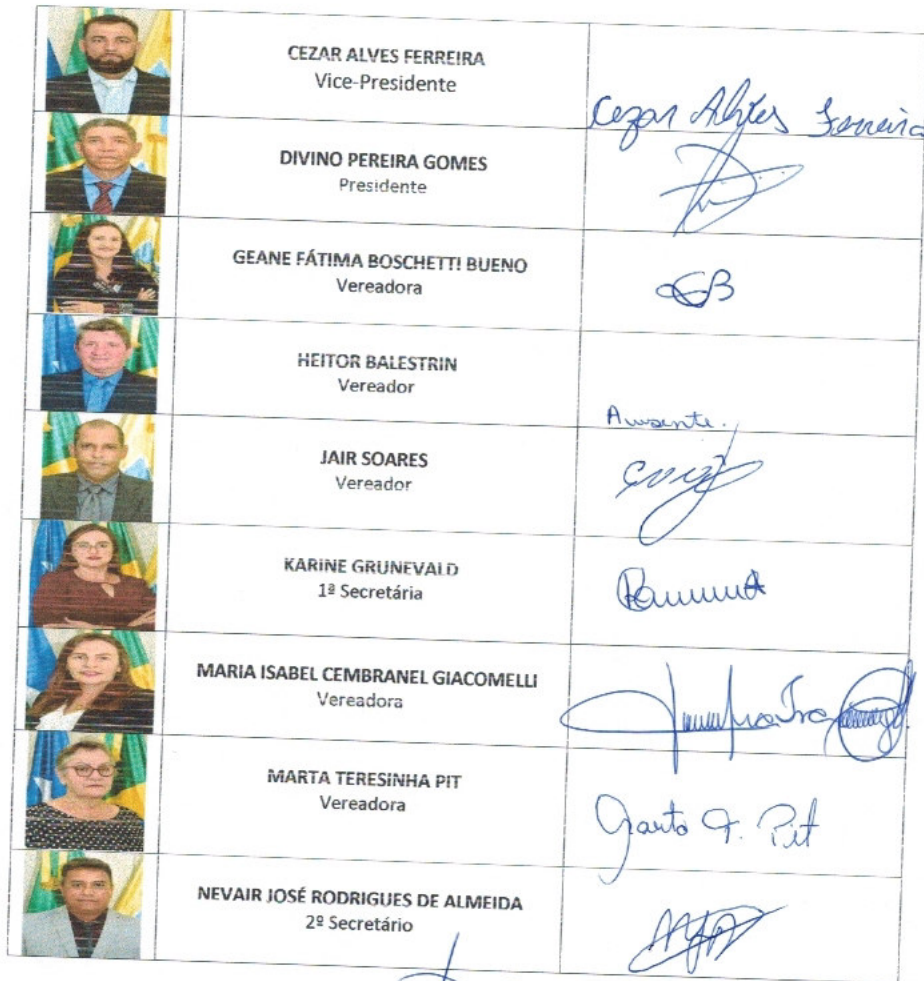 CEZAR ALVES FERREIRA
Vice-Presidente
Cezar Alves Ferreira
DIVINO PEREIRA GOMES
Presidente
GEANE FÁTIMA BOSCHETTI BUENO
Vereadora
GB
HEITOR BALESTRIN
Vereador
Ausente.
JAIR SOARES
Vereador
KARINE GRUNEVALD
1ª Secretária
MARIA ISABEL CEMBRANEL GIACOMELLI
Vereadora
MARTA TERESINHA PIT
Vereadora
Marta T. Pit
NEVAIR JOSÉ RODRIGUES DE ALMEIDA
2º Secretário